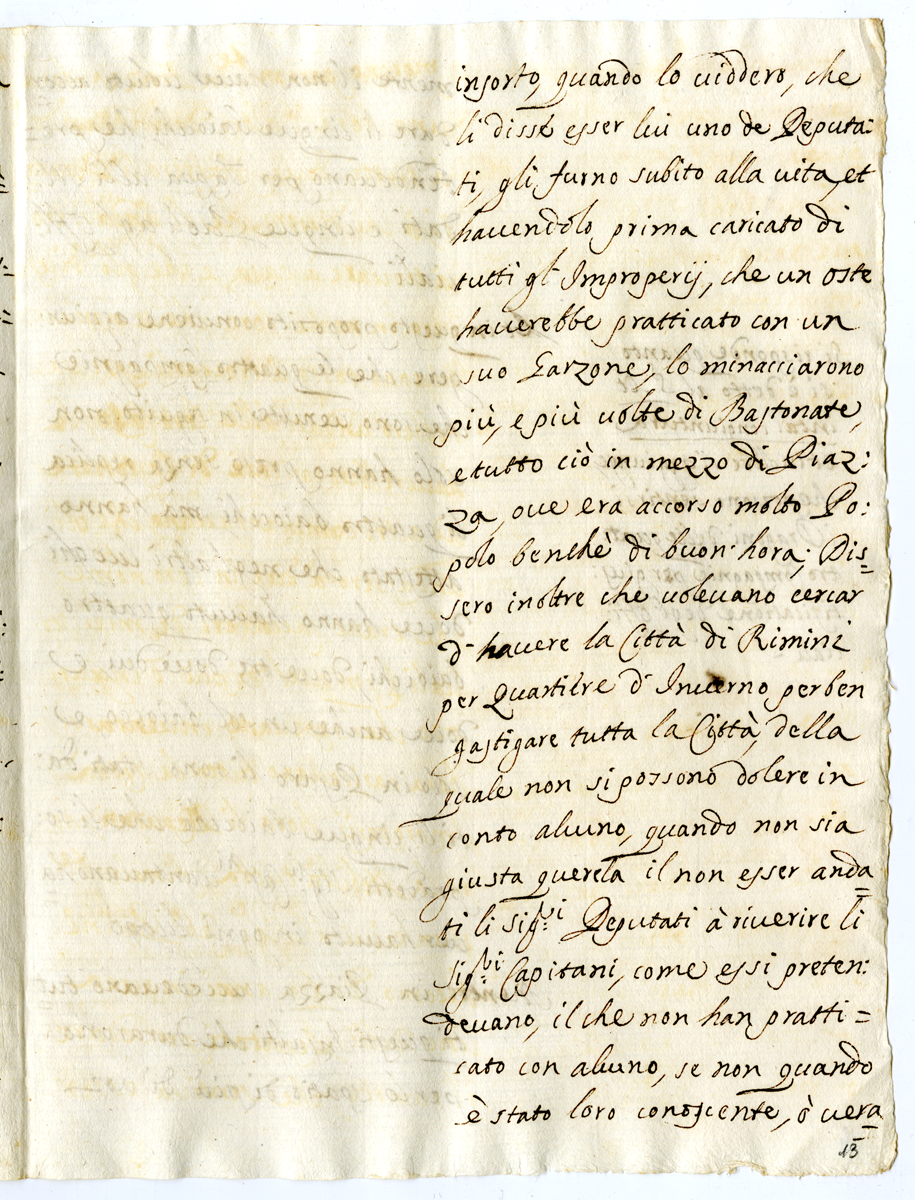 insorto, quando lo viddero, che
li disse esser lui uno de Deputa:
ti, gli furno subito alla vita, et
havendolo prima caricato di
tutti gl' Improperij, che un oste
haverebbe pratticato con un
suo Garzone, lo minacciarono
più, e più volte di Bastonate,
e tutto ciò in mezzo di Piaz:
za, ove era accorso molto Po:
polo benchè di buon' hora; Dis=
sero inoltre che volevano cercar
d' havere la Città di Rimini
per Quartiere d' Inverno per ben
gastigare tutta la Città, della
quale non si possono dolere in
conto alcuno, quando non sia
giusta querela il non esser anda=
ti li Sig.ri Deputati à riverire li
Sig.ri Capitani, come essi preten:
devano, il che non han pratti=
cato con alcuno, se non quando
è stato loro conoscente, ò vera=
13